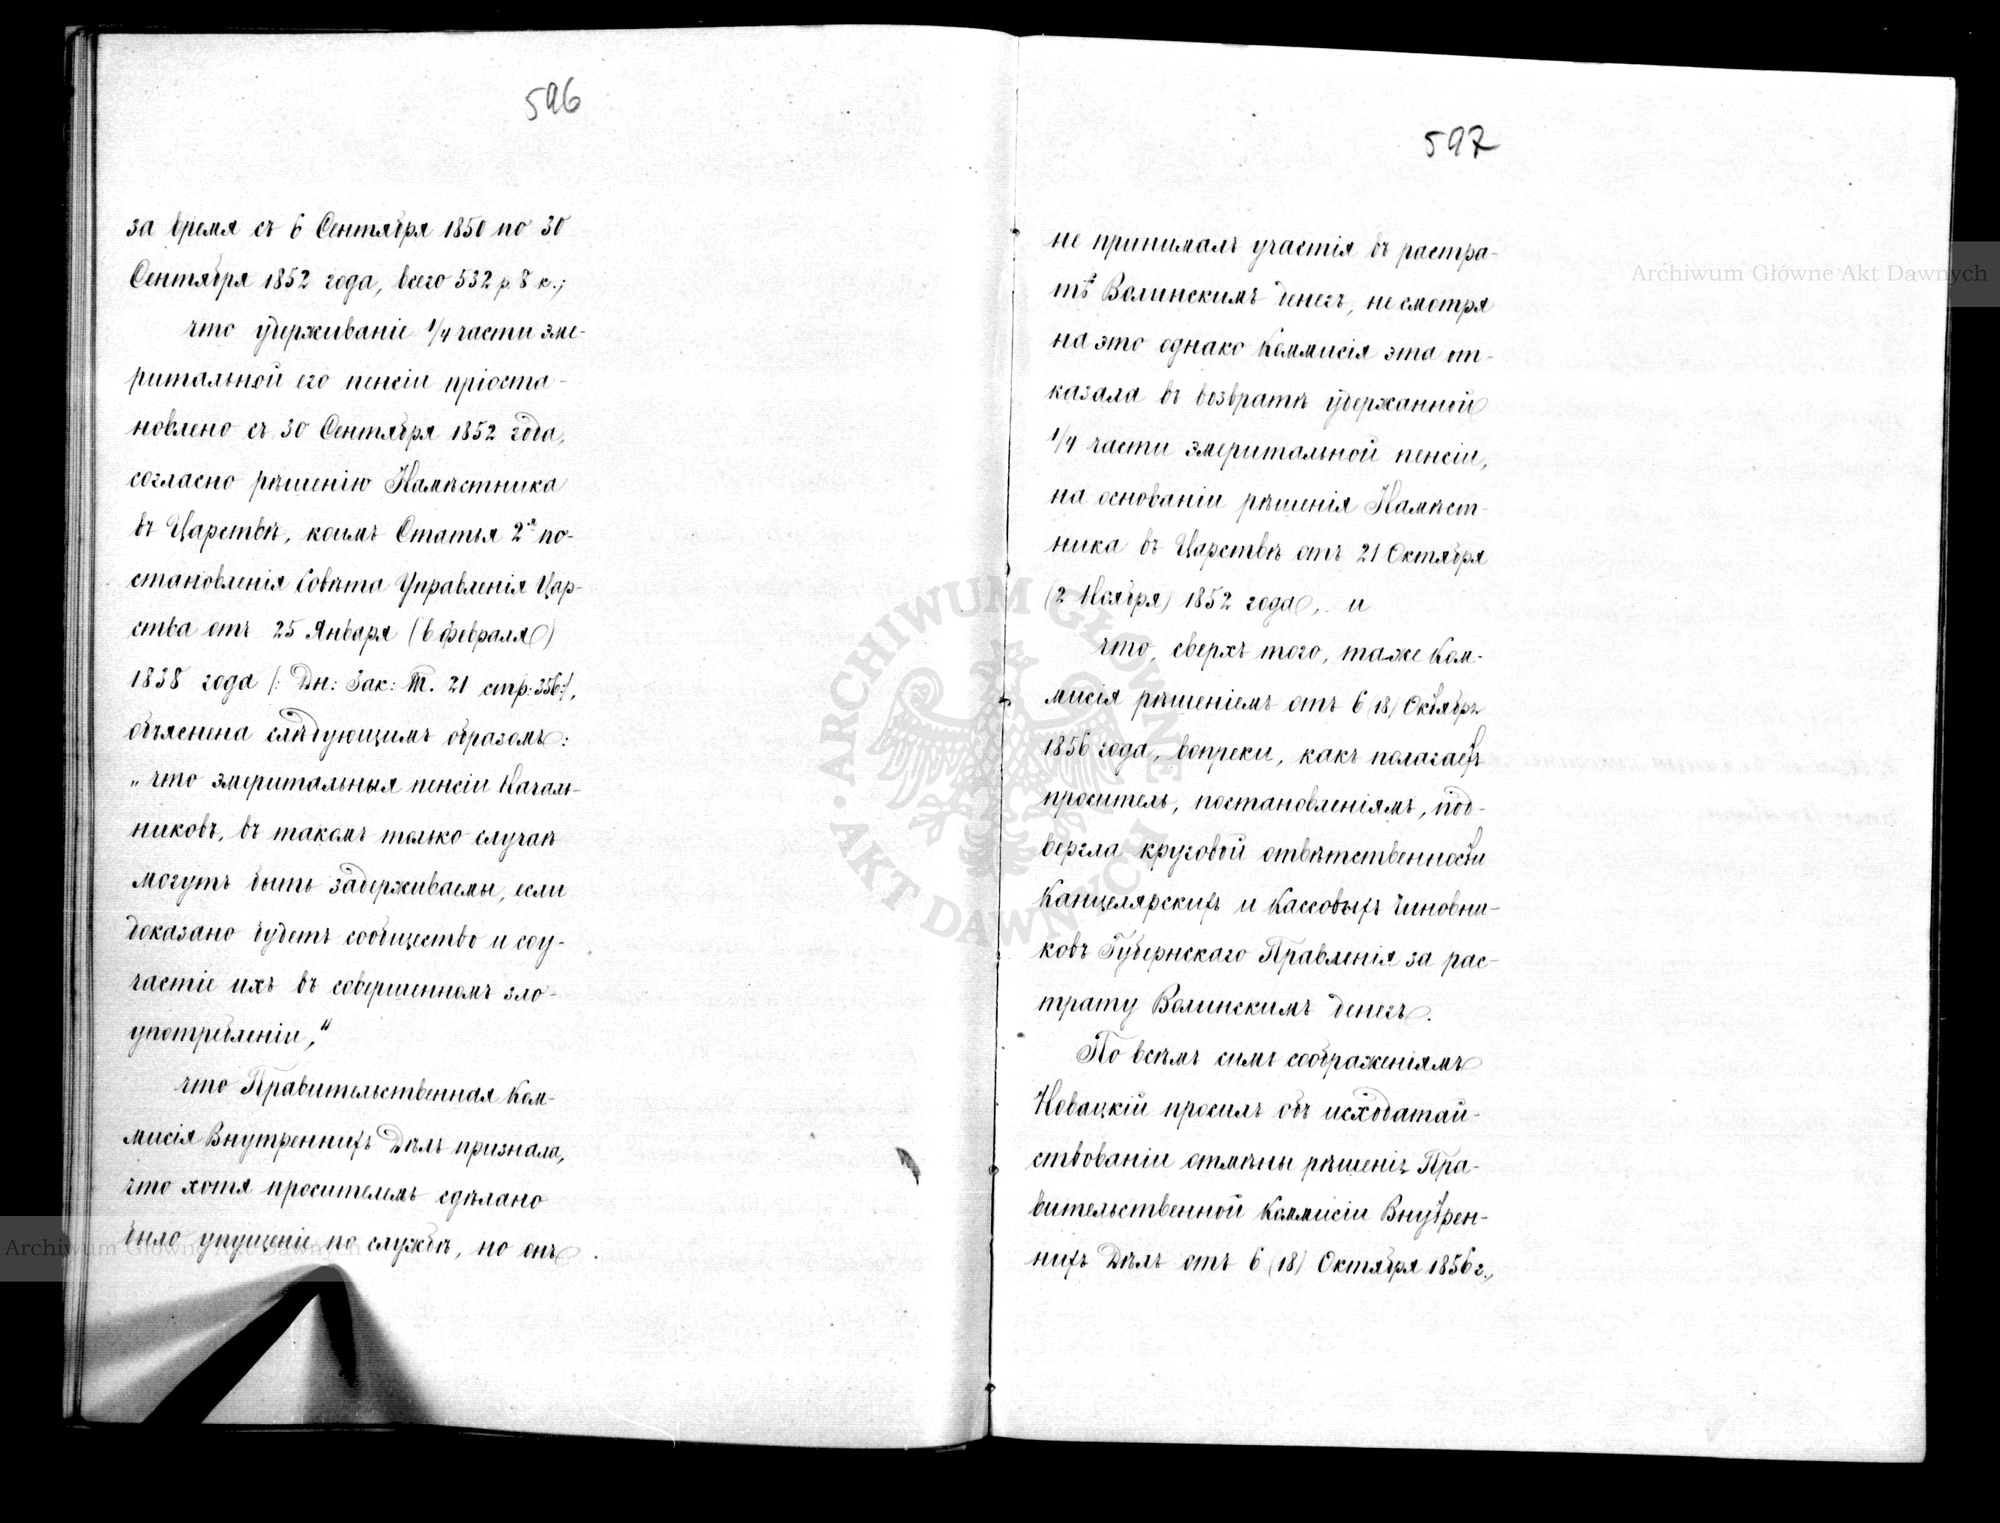 596
за время съ 6 Сентября 1850 по 30
Сентября 1852 года, всего 532 р. 8 к.;
что удерживаніе 1/4 части эме-
ритальной его пенсіи пріоста-
новлено съ 30 Сентября 1852 года,
согласно рѣшенію Намѣстника
въ Царствѣ, коимъ Статья 2я по-
становленія Совѣта Управленія Цар-
ства отъ 25 Января (6 Февраля)
1838 года /: Дн: Зак: Т. 21 стр: 356:/,
объяснена слѣдующимъ образомъ:
„что эмеритальныя пенсіи Началь-
никовъ, въ такомъ только случаѣ
могутъ быть задерживаемы, если
доказано будетъ сообщество и соу-
частіе ихъ въ совершенномъ зло-
употребленіи,"
что Правительственная Ком-
мисія Внутреннихъ Дѣлъ признала,
что хотя просителемъ сдѣлано
было упущеніе по службѣ, но онъ
597
не принималъ участія въ растра-
тѣ Волинскимъ денегъ, не смотря
на это однако Коммисія эта от-
казала въ возвратѣ удержанной
1/4 части эмеритальной пенсіи,
на основаніи рѣшенія Намѣст-
ника въ Царствѣ отъ 21 Октября
(2 Ноября) 1852 года, и
что, сверхъ того, таже Ком-
мисія рѣшеніемъ отъ 6 (18) Октября
1856 года, вопреки, какъ полагаетъ
проситель, постановленіямъ, под-
вергла круговой отвѣтственности
Канцелярскихъ и Кассовыхъ Чиновни-
ковъ Губернскаго Правленія за рас-
трату Волинскимъ денегъ.
По всѣмъ симъ соображеніямъ
Новацкій просилъ объ исходатай-
ствованіи отмѣны рѣшенія Пра-
вительственной Коммисіи Внутрен-
нихъ Дѣлъ отъ 6 (18) Октября 1856 г.,
Archiwum Główne Akt Dawnych
Archiwum Główne Akt Dawnych
ARCHIWUM GŁÓWNE
AKT DAWNYCH